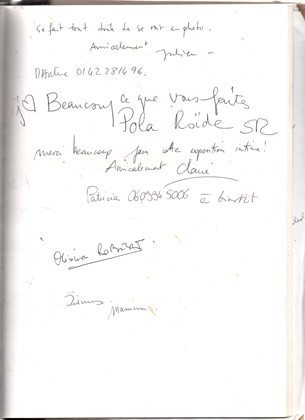 ça fait tout drôle de se voir en photo.
Amicalement Julien -
Martine 0142281696.
j♡ Beaucoup ce que vous faites
Pola Roïde SR
merci beaucoup pour cette exposition intime!
Amicalement
Patricia 0609945006 à bientôt
Olivier